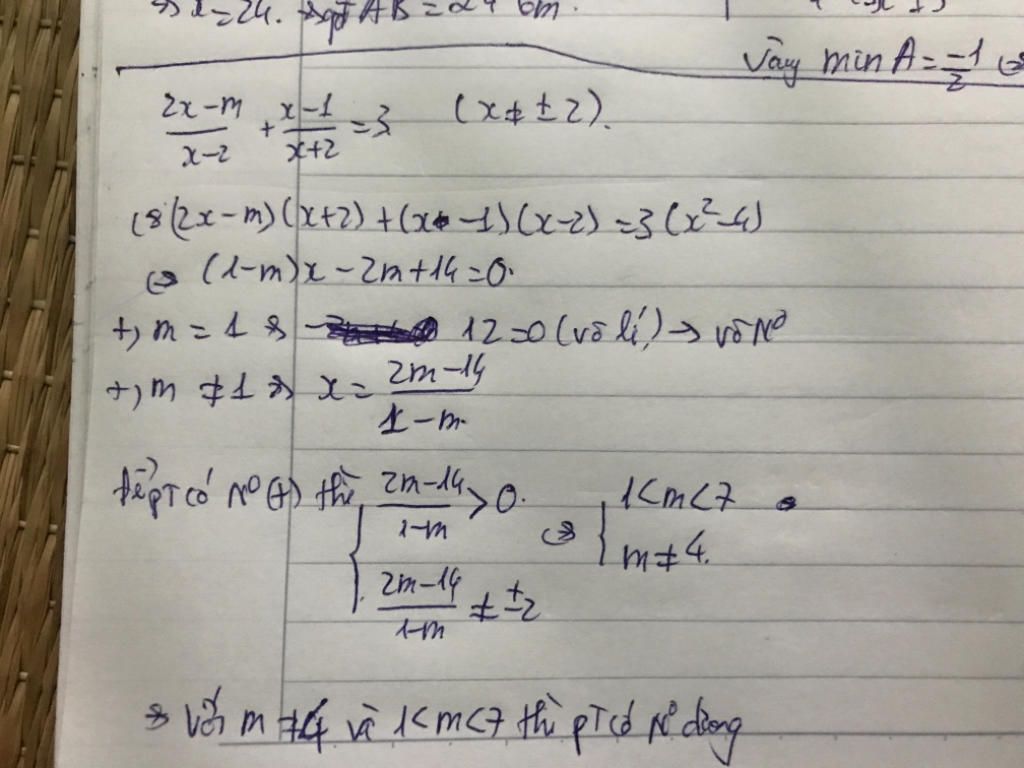 =24. AB = 24 cm.
Vậy min A = -1/2 ⇔
(2x-m)/(x-2) + (x-1)/(x+2) = 3 (x ≠ ± 2).
⇔ (2x-m)(x+2) + (x-1)(x-2) = 3(x²-4)
⇔ (1-m)x - 2m+14 = 0.
+, m = 1 ⇒ 12 = 0 (vô lí) → vô N⁰
+, m ≠ 1 ⇒ x = (2m-14)/(1-m)
Để pT có N⁰ (+) thì { (2m-14)/(1-m) > 0. ⇔ { 1<m<7
(2m-14)/(1-m) ≠ ±2 m ≠ 4.
⇒ Với m ≠ 4 và 1<m<7 thì pT có N⁰ dương